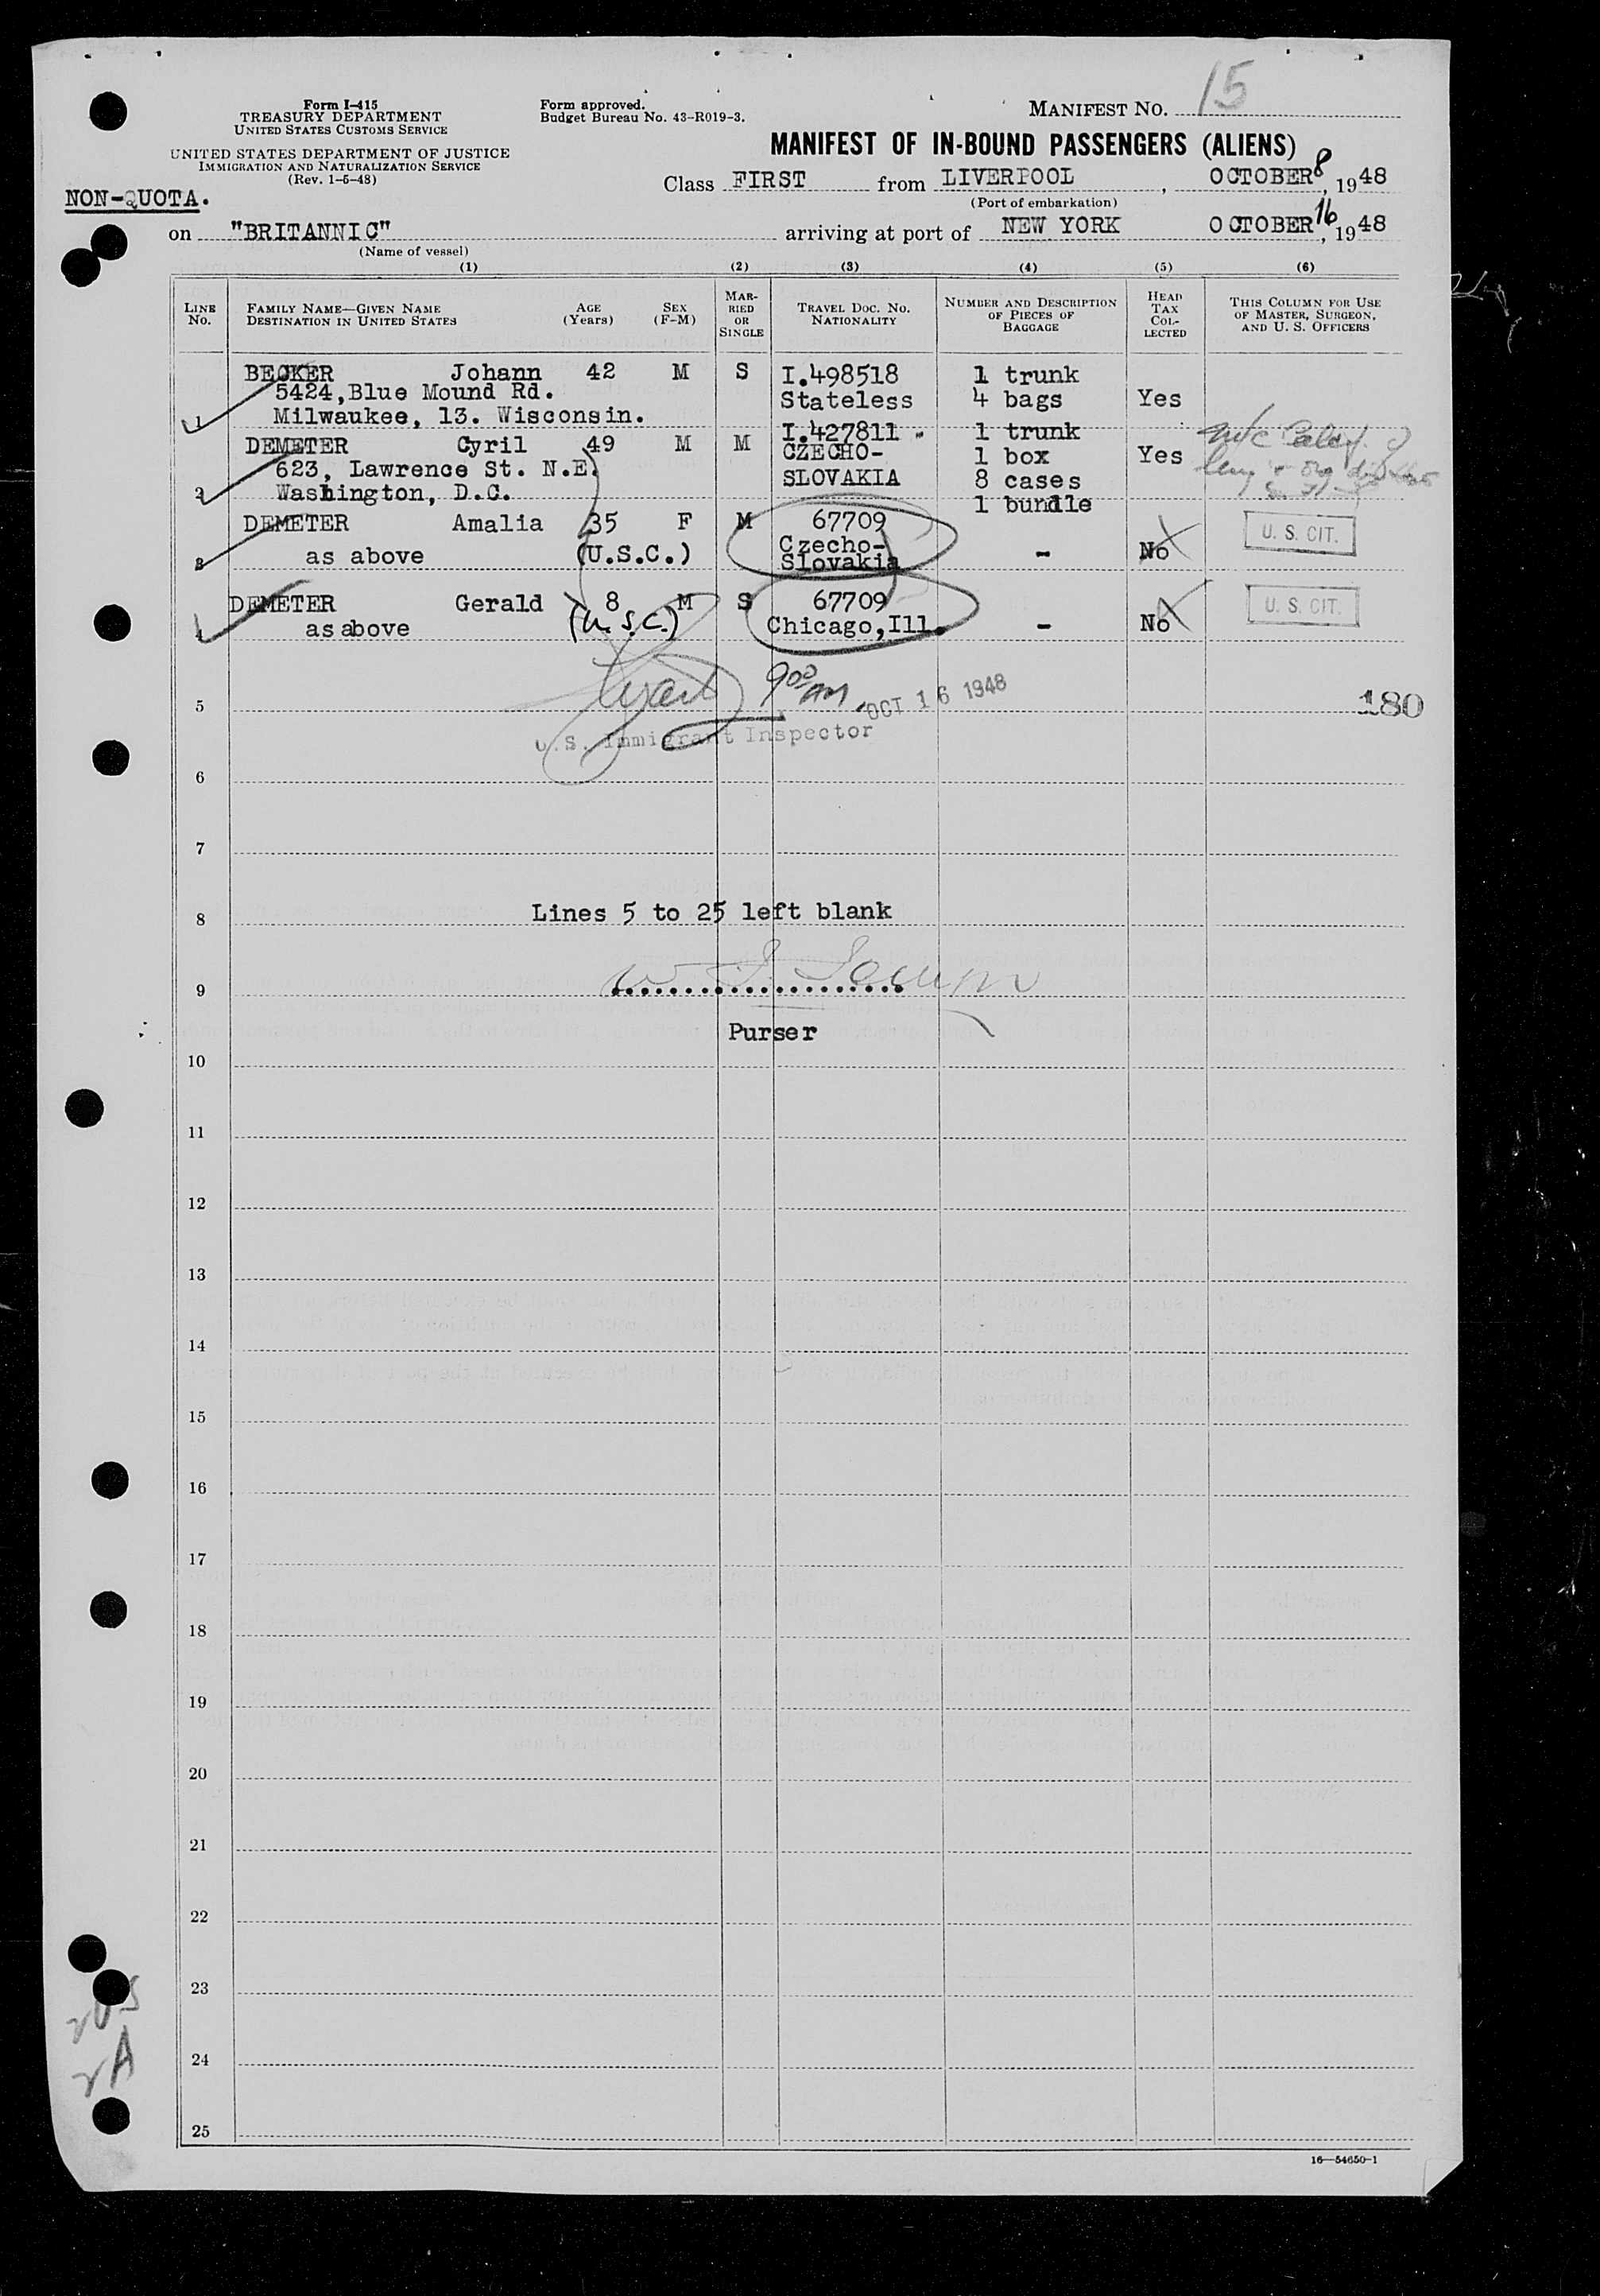 Form I-415
TREASURY DEPARTMENT
UNITED STATES CUSTOMS SERVICE
UNITED STATES DEPARTMENT OF JUSTICE
IMMIGRATION AND NATURALIZATION SERVICE
(Rev. 1-5-48)
Form approved.
Budget Bureau No. 43-R019-3.
MANIFEST NO. 15
MANIFEST OF IN-BOUND PASSENGERS (ALIENS)
NON-QUOTA.
Class FIRST from LIVERPOOL, OCTOBER 8, 1948
(Port of embarkation)
on "BRITANNIC" arriving at port of NEW YORK OCTOBER 16, 1948
(Name of vessel)
(1) (2) (3) (4) (5) (6)
LINE No.
FAMILY NAME—GIVEN NAME
DESTINATION IN UNITED STATES
AGE (Years)
SEX (F-M)
MARRIED OR SINGLE
TRAVEL DOC. NO.
NATIONALITY
NUMBER AND DESCRIPTION OF PIECES OF BAGGAGE
HEAD TAX COLLECTED
THIS COLUMN FOR USE OF MASTER, SURGEON, AND U. S. OFFICERS
BECKER Johann 42 M S I.498518 1 trunk
5424, Blue Mound Rd. Stateless 4 bags Yes
1 Milwaukee, 13. Wisconsin.
I.427811 1 trunk
DEMETER Cyril 49 M M CZECHO- 1 box Yes
623, Lawrence St. N.E. SLOVAKIA 8 cases
2 Washington, D.C. 1 bundle
DEMETER Amalia 35 F M 67709 U. S. CIT.
3 as above (U.S.C.) Czecho- - No
Slovakia
DEMETER Gerald 8 M S 67709 U. S. CIT.
4 as above (U.S.C.) Chicago, Ill. - No
9 00 AM OCT 16 1948
5 180
U.S. Immigrant Inspector
6
7
8 Lines 5 to 25 left blank
9
Purser
10
11
12
13
14
15
16
17
18
19
20
21
22
23
24
25
2US
2A
16—54650-1